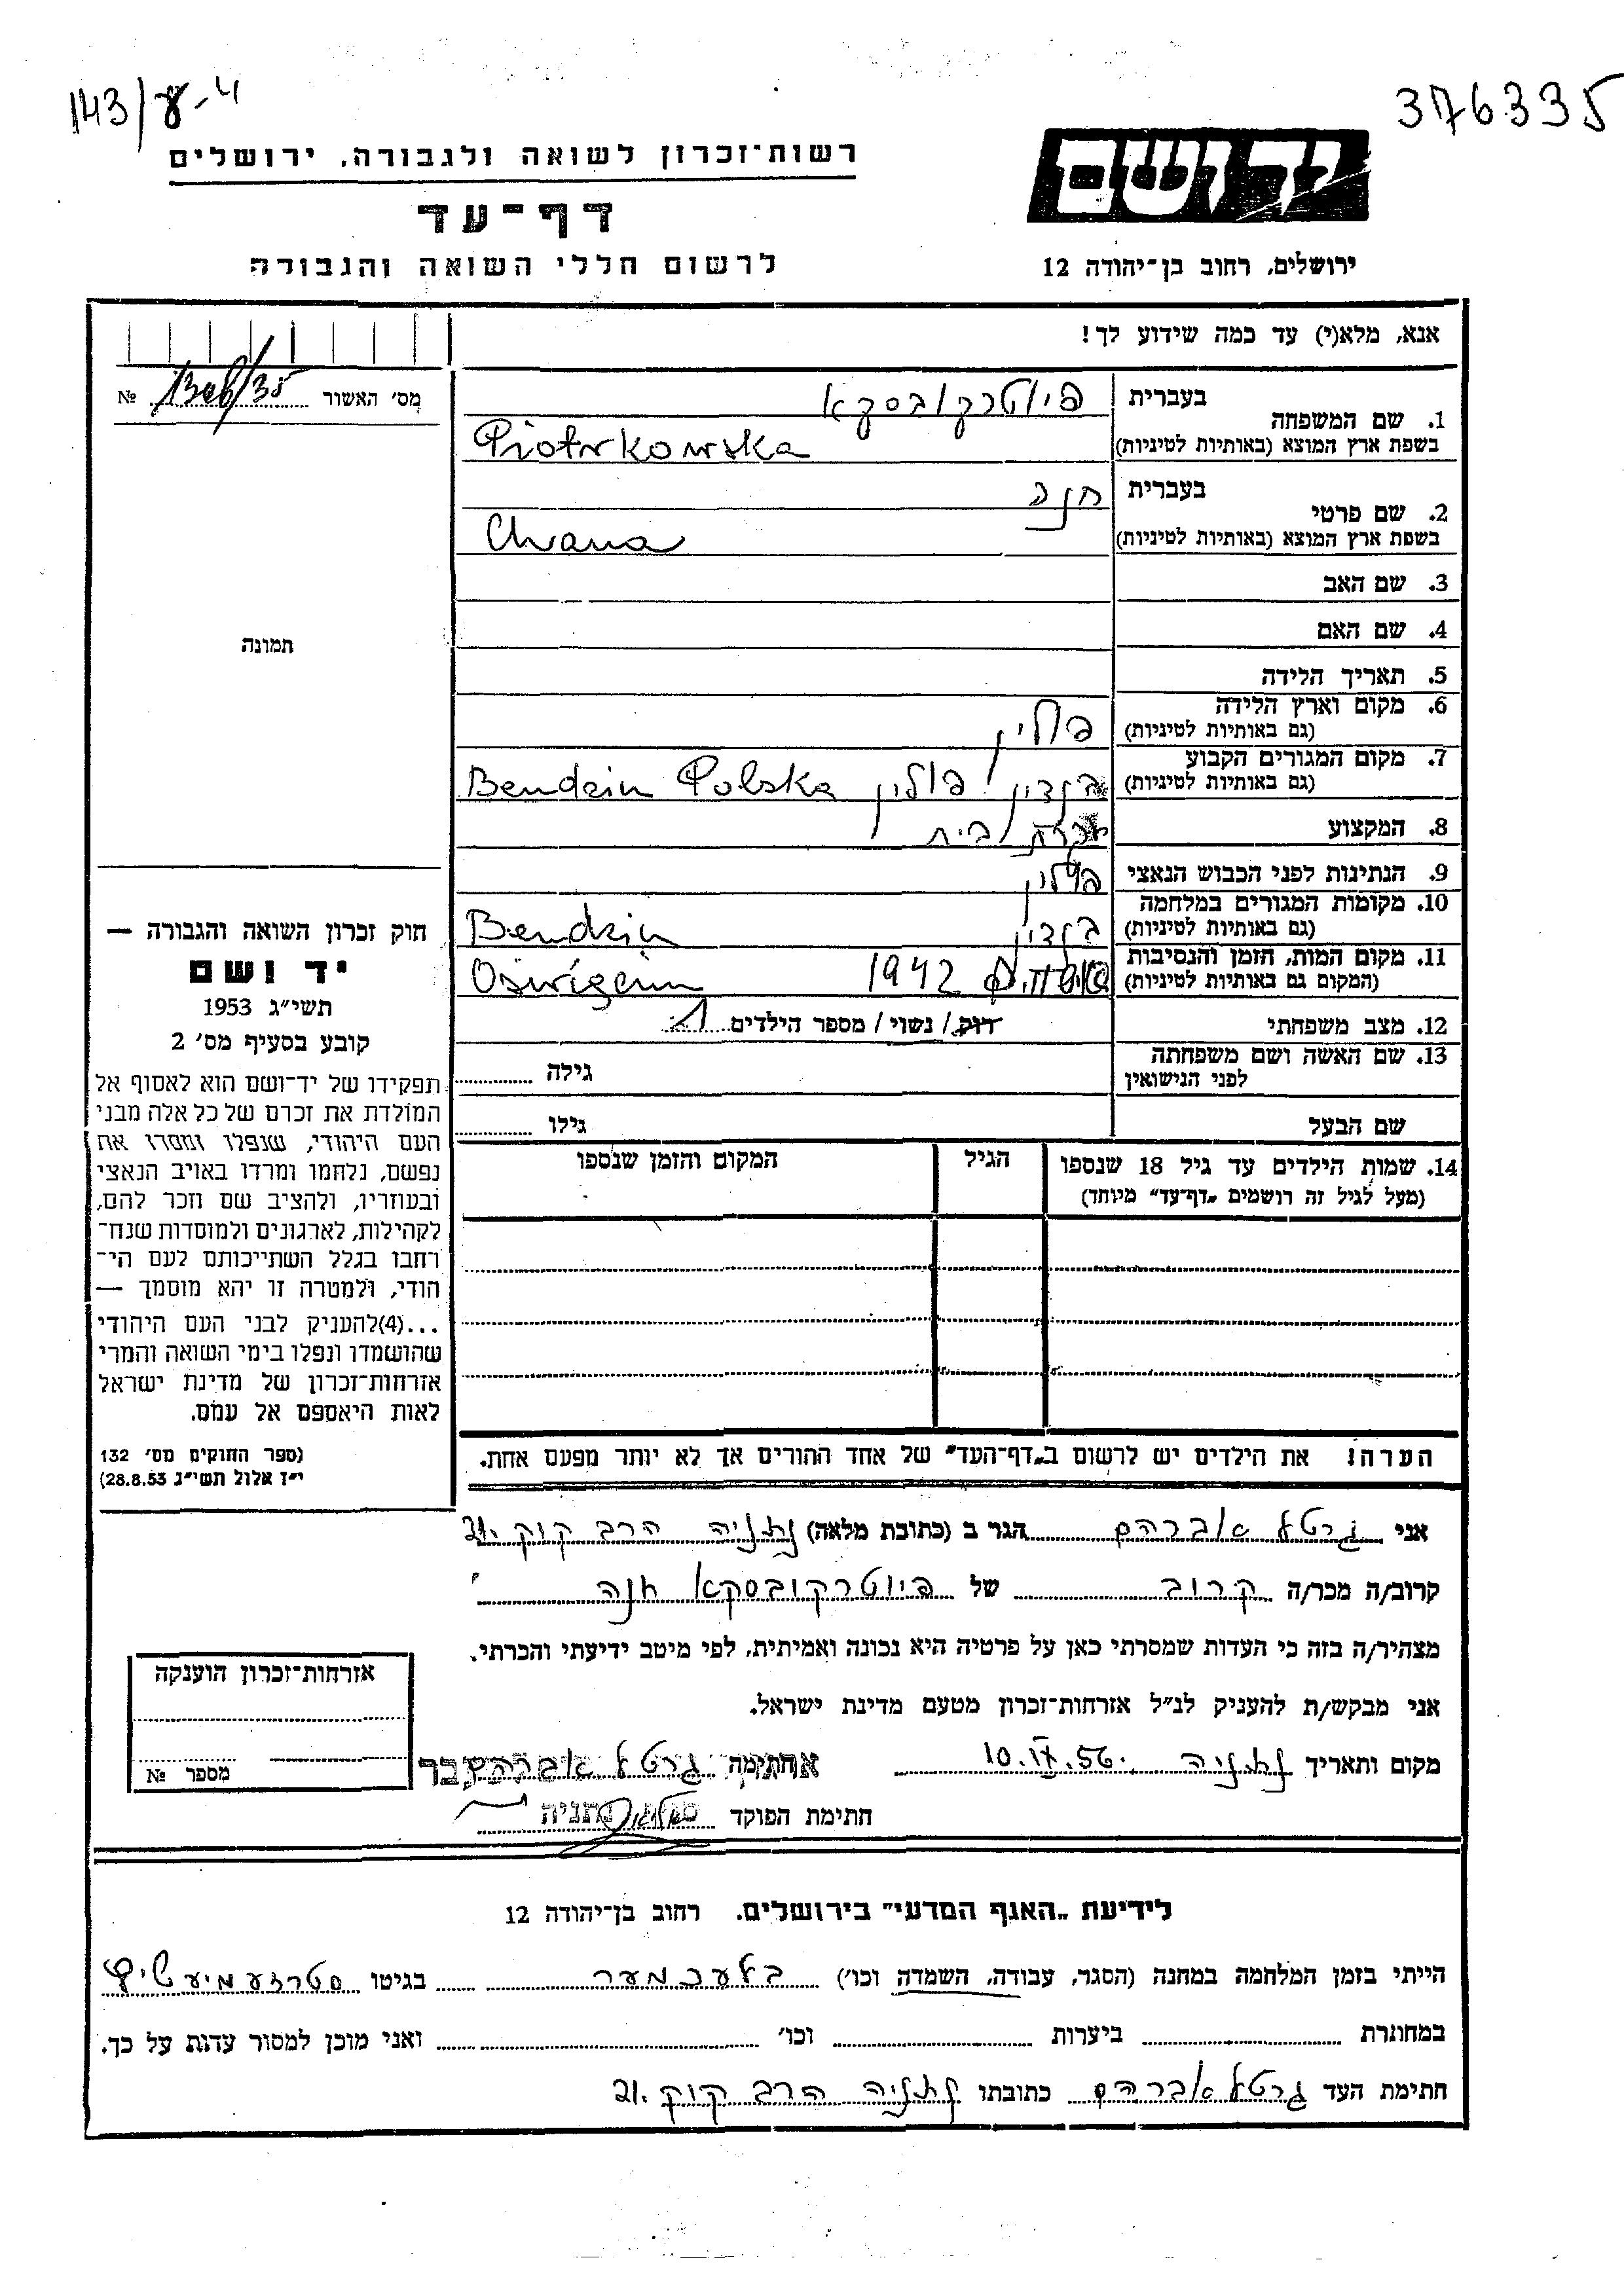 143/ע-4
376335
רשות־זכרון לשואה ולגבורה, ירושלים
יד ושם
דף־עד
לרשום חללי השואה והגבורה
ירושלים, רחוב בן־יהודה 12
אנא, מלא(י) עד כמה שידוע לך!
מס׳ האשור №
1. שם המשפחה בעברית פיוטרקובסקא
בשפת ארץ המוצא (באותיות לטיניות) Piotrkowska
2. שם פרטי בעברית חנה
בשפת ארץ המוצא (באותיות לטיניות) Chana
3. שם האב
4. שם האם
תמונה
5. תאריך הלידה
6. מקום וארץ הלידה פולין
(גם באותיות לטיניות)
7. מקום המגורים הקבוע בנדין פולין Bendzin Polska
(גם באותיות לטיניות)
8. המקצוע עקרת בית
9. הנתינות לפני הכבוש הנאצי פולין
10. מקומות המגורים במלחמה בנדין Bendzin
(גם באותיות לטיניות)
11. מקום המות, הזמן והנסיבות 1942
(המקום גם באותיות לטיניות)
12. מצב משפחתי רווק / נשוי / מספר הילדים 1
13. שם האשה ושם משפחתה גילה
לפני הנישואין
שם הבעל גילו
14. שמות הילדים עד גיל 18 שנספו הגיל המקום והזמן שנספו
(מעל לגיל זה רושמים „דף־עד״ מיוחד)
הערה! את הילדים יש לרשום ב„דף־העד״ של אחד ההורים אך לא יותר מפעם אחת.
חוק זכרון השואה והגבורה —
יד ושם
תשי״ג 1953
קובע בסעיף מס׳ 2
תפקידו של יד־ושם הוא לאסוף אל
המולדת את זכרם של כל אלה מבני
העם היהודי, שנפלו ומסרו את
נפשם, נלחמו ומרדו באויב הנאצי
ובעוזריו, ולהציב שם וזכר להם,
לקהילות, לארגונים ולמוסדות שנח־
רבו בגלל השתייכותם לעם הי־
הודי, ולמטרה זו יהא מוסמך —
...(4)להעניק לבני העם היהודי
שהושמדו ונפלו בימי השואה והמרי
אזרחות־זכרון של מדינת ישראל
לאות היאספם אל עמם.
(ספר החוקים מס׳ 132
י״ז אלול תשי״ג 28.8.53)
אני גרטל אברהם הגר ב (כתובת מלאה) נתניה הרב קוק 21.
קרוב/ה מכר/ה קרוב של פיוטרקובסקא חנה
מצהיר/ה בזה כי העדות שמסרתי כאן על פרטיה היא נכונה ואמיתית, לפי מיטב ידיעתי והכרתי.
אני מבקש/ת להעניק לנ״ל אזרחות־זכרון מטעם מדינת ישראל.
מקום ותאריך נתניה 10.IX.56. חתימה גרטל אברהם
חתימת הפוקד נתניה
אזרחות־זכרון הוענקה
מספר №
לידיעת „האגף המדעי״ בירושלים, רחוב בן־יהודה 12
הייתי בזמן המלחמה במחנה (הסגר, עבודה, השמדה וכו׳) בלעכמער בגיטו סטרזעמיעשיץ
במחתרת ביערות וכו׳ ואני מוכן למסור עדות על כך.
חתימת העד גרטל אברהם כתובתו נתניה הרב קוק 21.